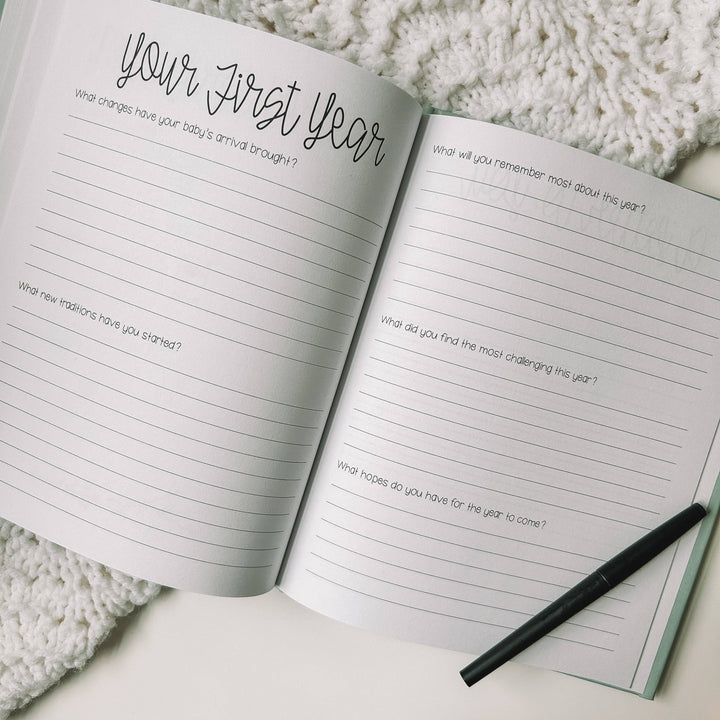 Your First Year
What changes have your baby's arrival brought?
What new traditions have you started?
What will you remember most about this year?
What did you find the most challenging this year?
What hopes do you have for the year to come?